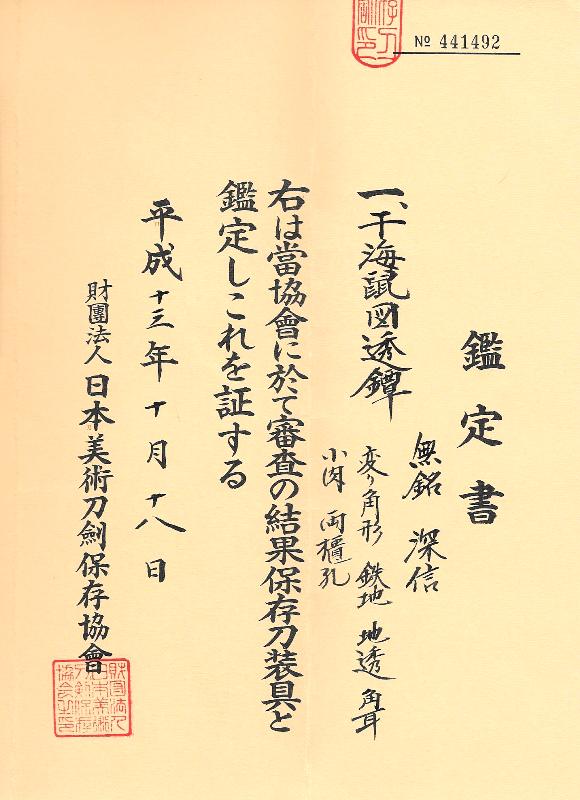 № 441492
鑑定書
一、干海鼠図透鐔
無銘 深信
変り角形 鉄地 地透 角耳
小肉 両櫃孔
右は當協會に於て審査の結果保存刀装具と
鑑定しこれを証する
平成十三年十月十八日
財團法人 日本美術刀劍保存協會